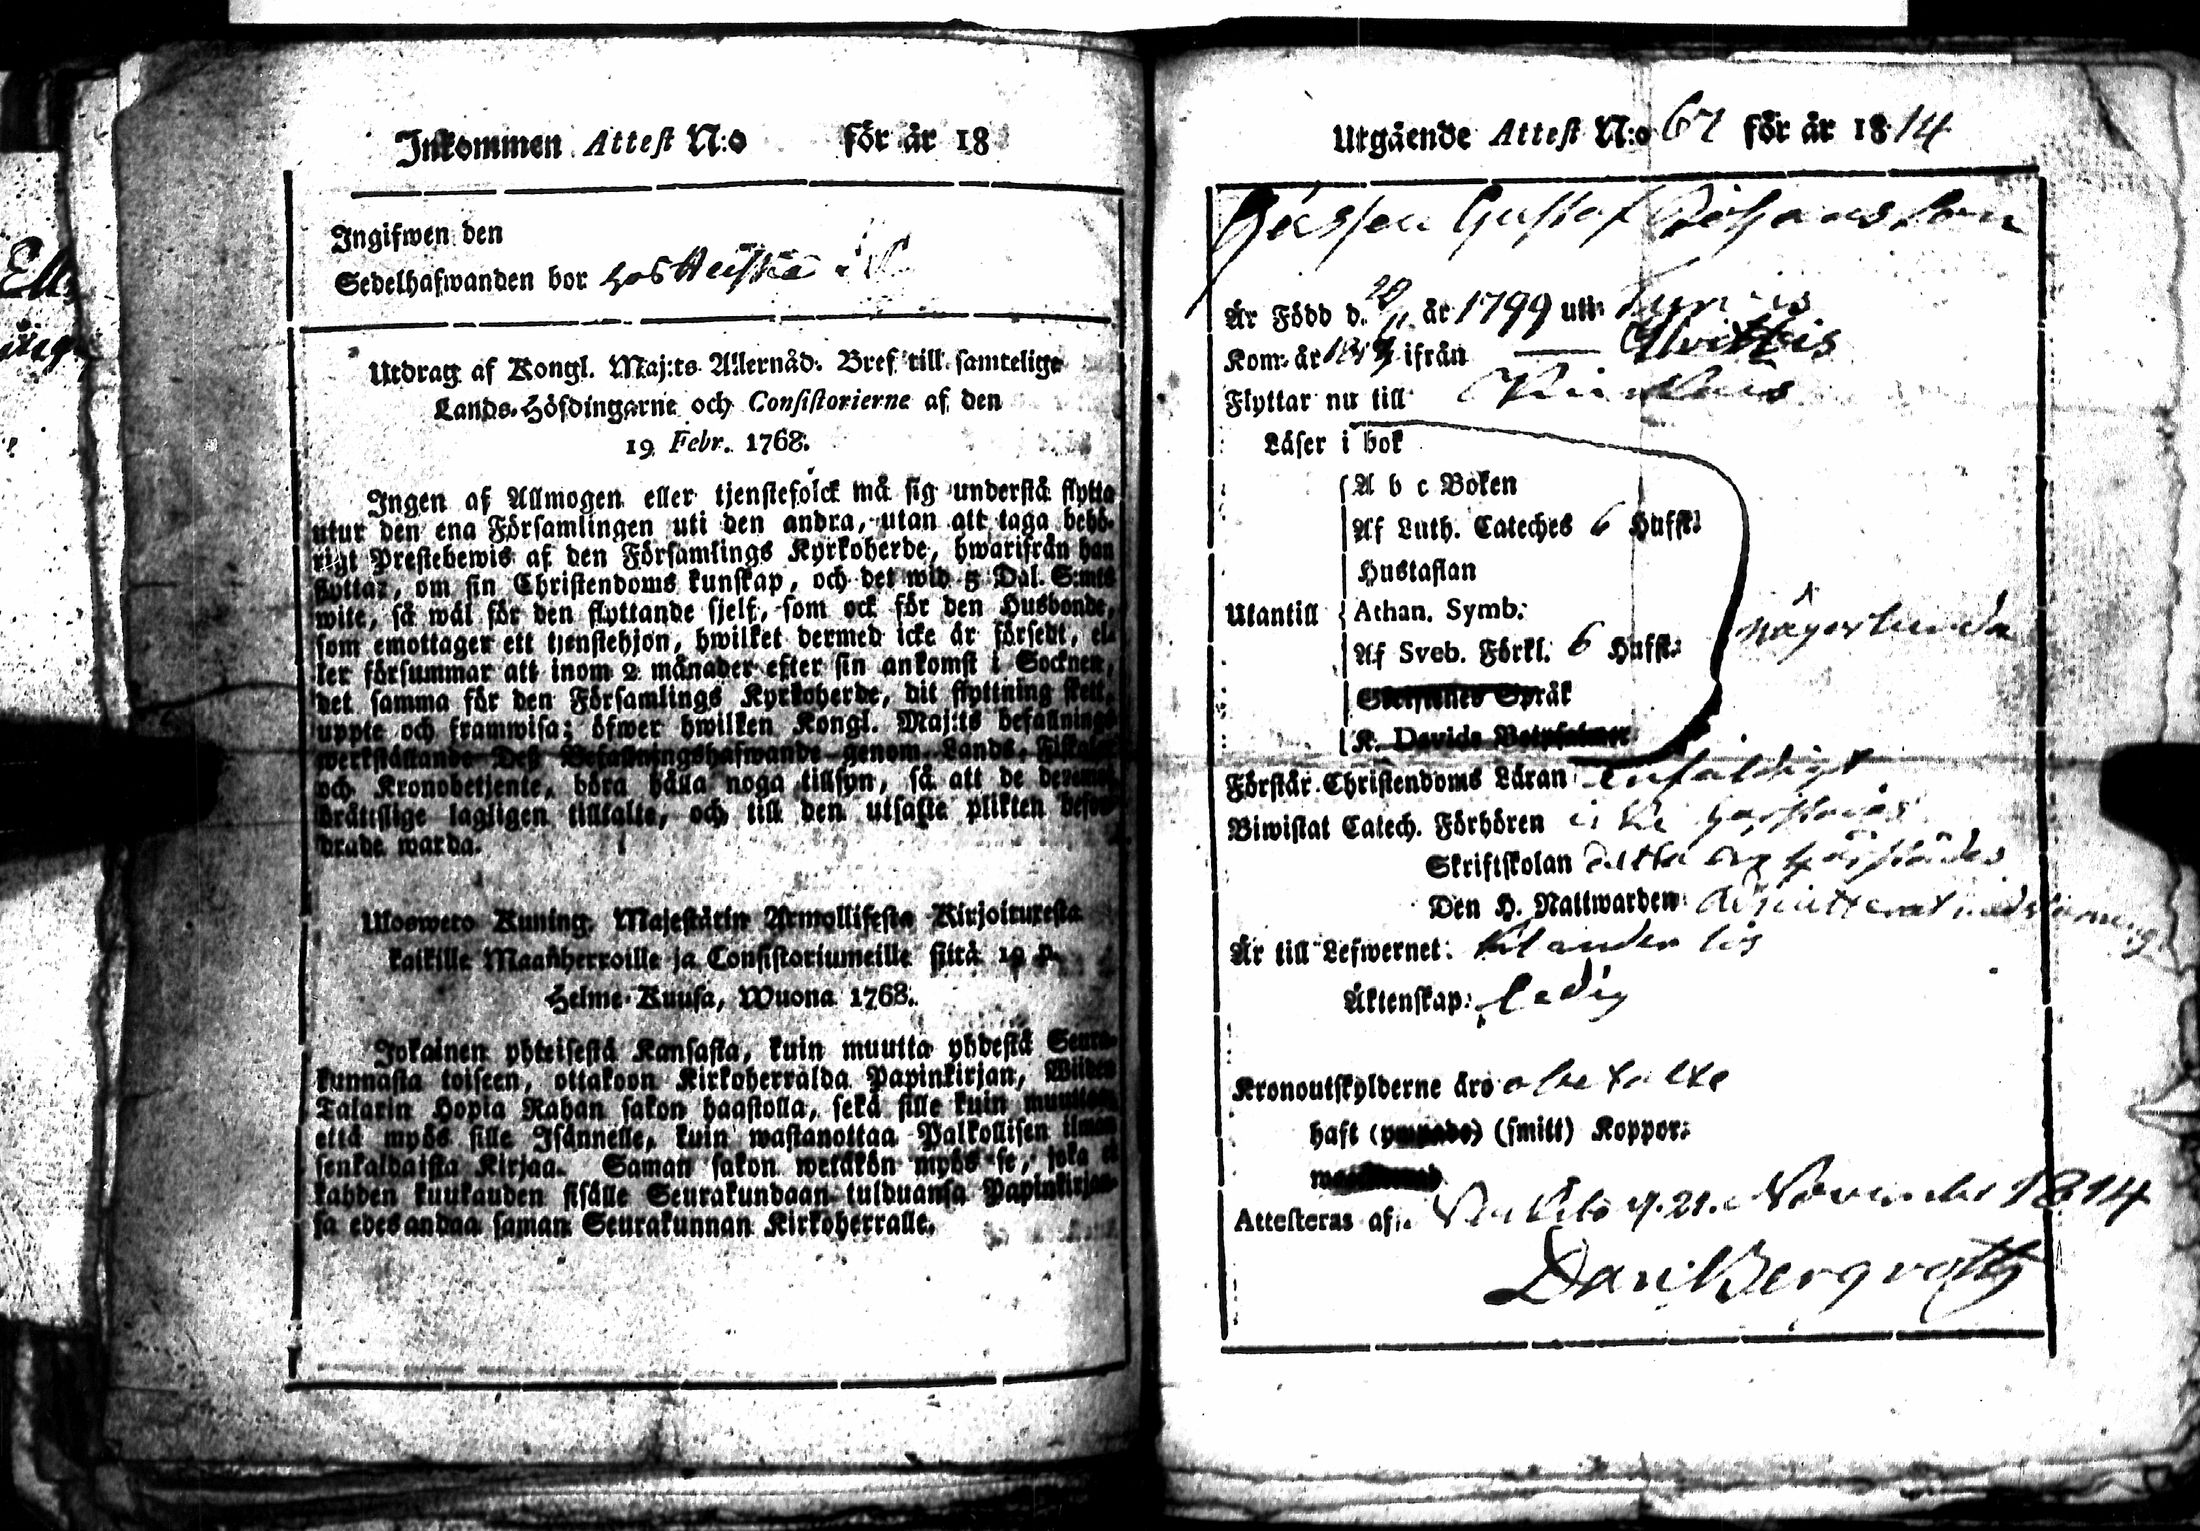 Inkommen Attest N:o för år 18
Ingifwen den
Sedelhafwanden bor hos
Utdrag af Kongl. Maj:ts Allernåd. Bref till samtelige
Lands-Höfdingarne och Consistorierne af den
19 Febr. 1768.
Ingen af Allmogen eller tjenstefolck må sig understå flytta
utur den ena Församlingen uti den andra, utan att taga behö-
rigt Prestebewis af den Församlings Kyrkoherde, hwarifrån han
flyttar, om sin Christendoms kunskap, och det wid 5 Dal. S:mts
wite, så wäl för den flyttande sjelf, som ock för den Husbonde,
som emottager ett tjenstehjon, hwilket dermed icke är försedt, el-
ler försummar att inom 2 månader efter sin ankomst i Socknen,
det samma för den Församlings Kyrkoherde, dit flyttning skett,
uppte och framwisa; öfwer hwilken Kongl. Maj:ts befallnings
werkställande Deß Befallningshafwande genom Lands-Fiskaler
och Kronobetjente, böra hålla noga tillsyn, så att de deremot
brättslige lagligen tilltalte, och till den utsatte plikten befor-
drade warda.
Uloswero Kuning. Majestätin Armollisesta Kirjoituresta
kaikille Maanherroille ja Consistoriumeille siitä 19 p.
Helme-Kuusa, Wuona 1768.
Jokainen yhteisestä Kansasta, kuin muutta yhdestä Seura-
kunnasta toiseen, ottakoon Kirkoherralda Papinkirjan, Wiiden
Talarin Hopia Rahan sakon haastolla, sekä sille kuin muuttaa,
että myös sille Isännelle, kuin wastanottaa Palkollisen ilman
senkaldaista Kirjaa. Saman sakon wetäkön myös se, joka ei
kahden kuukauden sisälle Seurakundaan tulduansa Papinkirjaan-
sa edesandaa saman Seurakunnan Kirkoherralle.
Utgående Attest N:o 67 för år 1814
Gossen Gustaf Johansson
Är Född d. 29/11 år 1799 uti
Kom år ifrån Hvittis
Flyttar nu till
Läser i bok
A b c Boken
Af Luth. Cateches 6 Hufst:
Hustaflan
Utantill Athan. Symb:
Af Sveb. Förkl. 6 Hufst:
någorlunda
Språk
K. Davids Botpsalmer
Förstår Christendoms Läran enfaldigt
Biwistat Catech. Förhören
Skriftskolan
Den H. Nattwarden
Är till Lefwernet:
Äktenskap: ledig
Kronoutskylderne äro obetalte
haft (ympade) (smitt) Koppor:
Attesteras af d. 21. November 1814